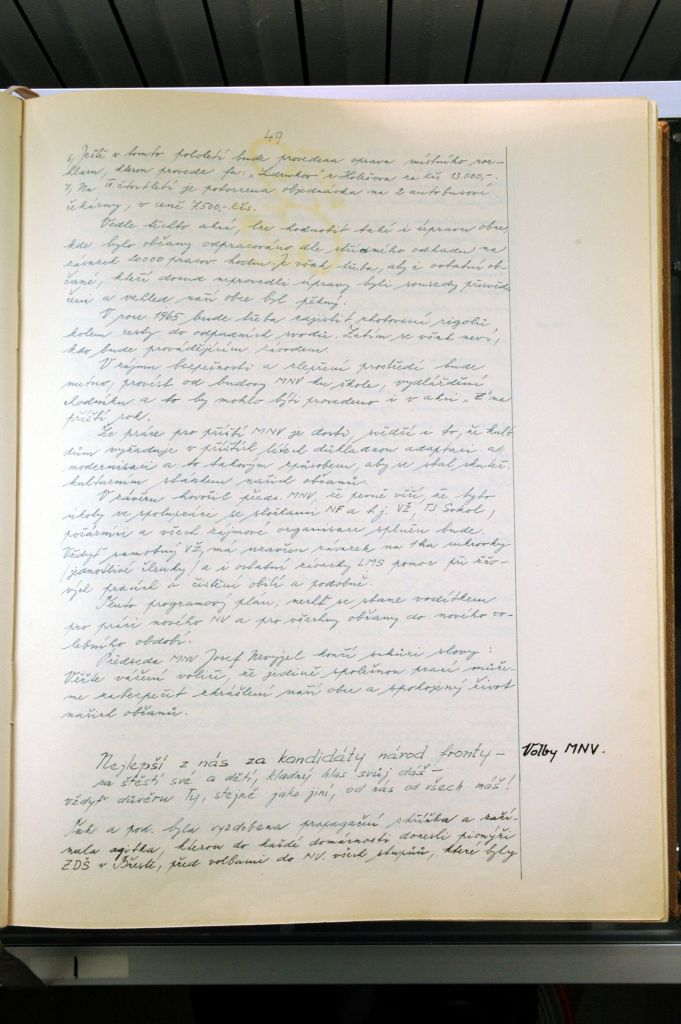 49
6, Ještě v tomto pololetí bude provedena oprava místního roz-
hlasu, kterou provede fa: z Holešova za Kčs 13.000,-.
7, Na IV. čtvrtletí je potvrzena objednávka na 2 autobusové
čekárny, v ceně 7.500,- Kčs.
Vedle těchto akcí, lze hodnotit také i úpravu obce,
kde bylo občany odpracováno dle střízlivého odhadu na
závazek 20000 pracov. hodin. Je však třeba, aby i ostatní ob-
čané, kteří dosud neprovedli úpravy byli sousedy přesvěd-
čeni a vzhled naší obce byl pěkný.
V roce 1965 bude třeba zajistit zhotovení rigolů
kolem cesty do odpadních svodů. Zatím se však neví,
kdo bude prováděcím závodem.
V zájmu bezpečnosti a zlepšení prostředí bude
nutno, provést od budovy MNV ku škole, vydláždění
chodníku a to by mohlo býti provedeno i v akci „Z" na
příští rok.
Že práce pro příští MNV je dosti, svědčí i to, že kult.
dům vyžaduje v příštích létech důkladnou adaptaci a
modernisaci a to takovým způsobem, aby se stal skuteč.
kulturním stánkem našich občanů.
V závěru hovořil předs. MNV, že pevně věří, že tyto
úkoly ve spolupráci se složkami NF a t. j. VŽ, TJ Sokol,
požárníci a všech zájmové organisace splněny bude.
Vždyť samotný VŽ, má uzavřen závazek na 1ha cukrovky
/jednotlivé členky/ a i ostatní závazky LMS pomoc při žňo-
vých pracích a čistění obilí a podobně.
Tento programový plán, nechť se stane vodítkem
pro práci nového NV a pro všechny občany do nového vo-
lebního období.
Předseda MNV Josef Nevyjel končí schůzi slovy:
Věřte vážení voliči, že jedině společnou prací může-
me zabezpečit zkrášlení naší obce a spokojený život
našich občanů.
Nejlepší z nás za kandidáty národ fronty –
za štěstí své a dětí, kladný hlas svůj dáš –
vždyť důvěru Ty, stejně jako jiní, od nás od všech máš!
Volby MNV.
Tak a pod. byla vyzdobena propagační skříňka a začí-
nala agitka, kterou do každé domácnosti donesli pionýři
ZDŠ v Břestě, před volbami do NV. všech stupňů, které byly